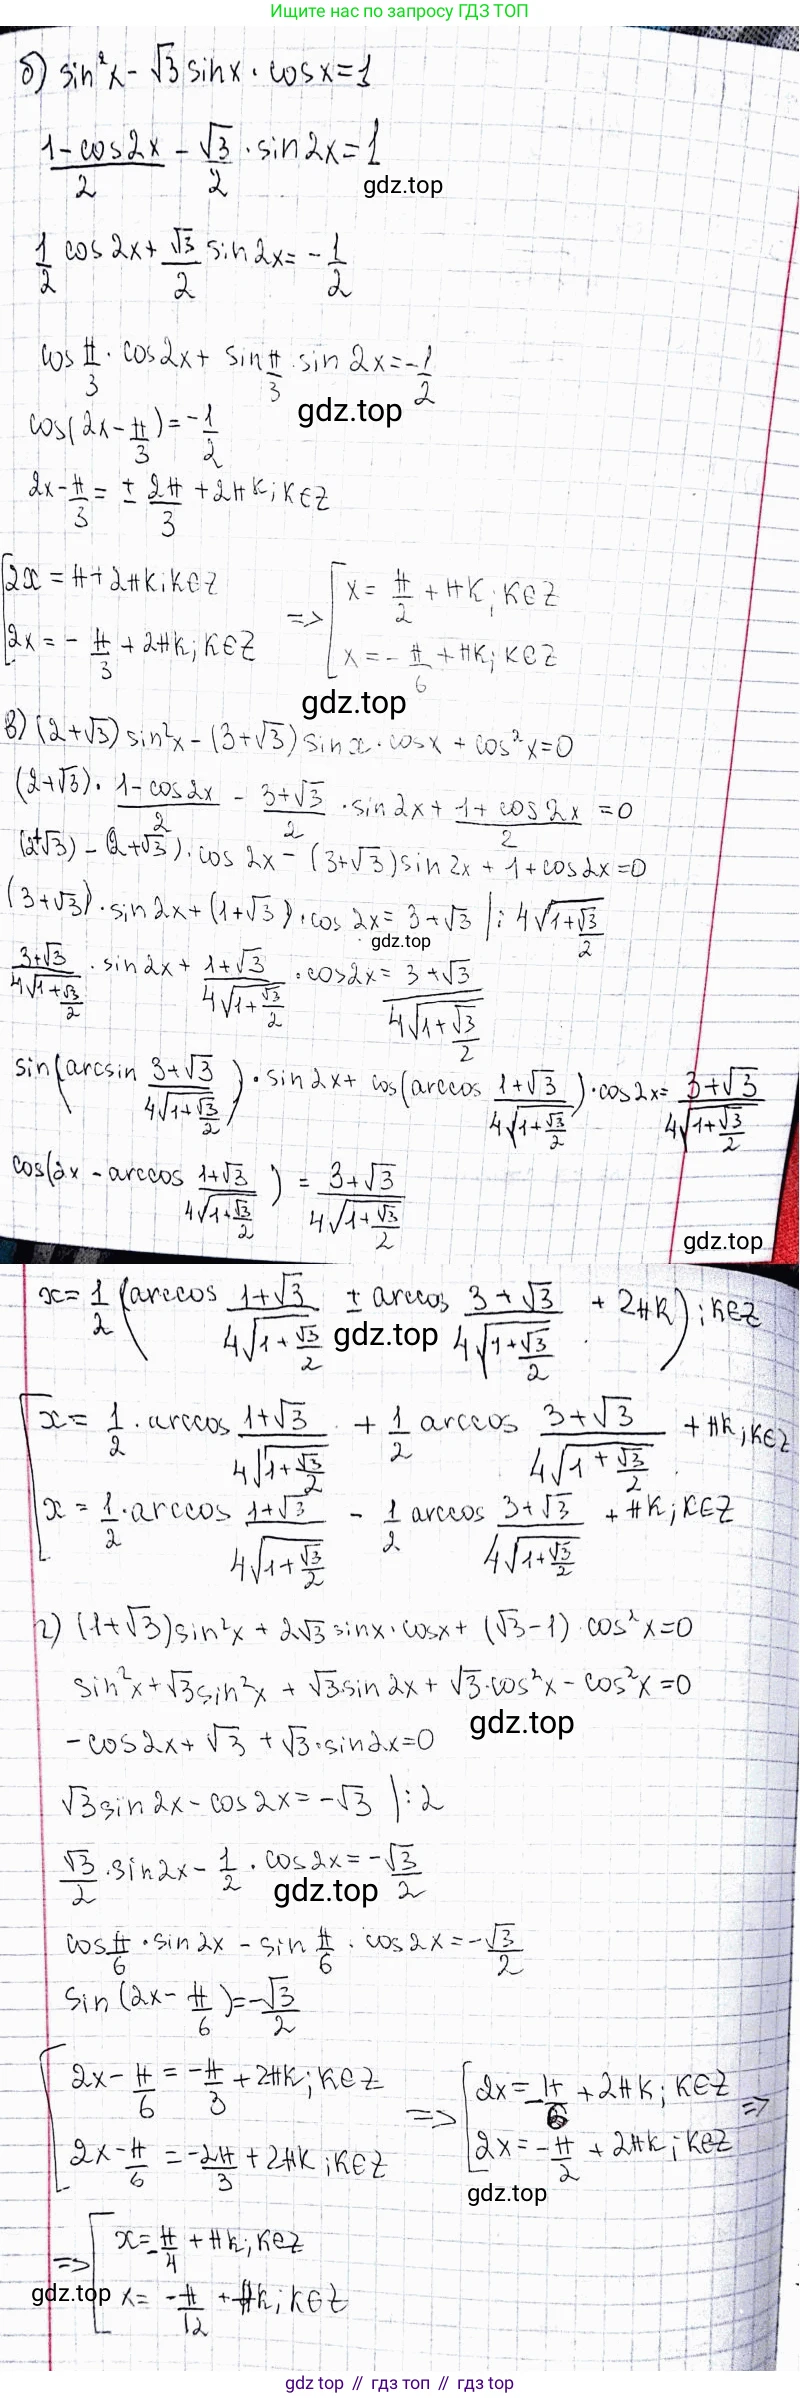 Ищите нас по запросу ГДЗ ТОП
б) sin²x - √3 sinx · cosx = 1
(1 - cos2x)/2 - √3/2 · sin2x = 1
gdz.top
1/2 cos2x + √3/2 sin2x = -1/2
cos π/3 · cos2x + sin π/3 · sin2x = -1/2
gdz.top
cos(2x - π/3) = -1/2
2x - π/3 = ± 2π/3 + 2πk; k∈Z
[2x = π + 2πk; k∈Z
2x = - π/3 + 2πk; k∈Z
=> [x = π/2 + πk; k∈Z
x = - π/6 + πk; k∈Z
gdz.top
в) (2+√3) sin²x - (3+√3) sinx · cosx + cos²x = 0
(2+√3) · (1 - cos2x)/2 - (3+√3)/2 · sin2x + (1 + cos2x)/2 = 0
(2+√3) - (2+√3) · cos2x - (3+√3) sin2x + 1 + cos2x = 0
(3+√3) · sin2x + (1+√3) · cos2x = 3+√3 | : 4√(1+√3/2)
gdz.top
(3+√3)/(4√(1+√3/2)) · sin2x + (1+√3)/(4√(1+√3/2)) · cos2x = (3+√3)/(4√(1+√3/2))
sin(arcsin (3+√3)/(4√(1+√3/2))) · sin2x + cos(arccos (1+√3)/(4√(1+√3/2))) · cos2x = (3+√3)/(4√(1+√3/2))
cos(2x - arccos (1+√3)/(4√(1+√3/2))) = (3+√3)/(4√(1+√3/2))
gdz.top
x = 1/2 (arccos (1+√3)/(4√(1+√3/2)) ± arccos (3+√3)/(4√(1+√3/2)) + 2πk); k∈Z
gdz.top
[x = 1/2 · arccos (1+√3)/(4√(1+√3/2)) + 1/2 arccos (3+√3)/(4√(1+√3/2)) + πk; k∈Z
x = 1/2 · arccos (1+√3)/(4√(1+√3/2)) - 1/2 arccos (3+√3)/(4√(1+√3/2)) + πk; k∈Z
г) (1+√3) sin²x + 2√3 sinx · cosx + (√3-1) · cos²x = 0
sin²x + √3 sin²x + √3 sin2x + √3 · cos²x - cos²x = 0
gdz.top
-cos2x + √3 + √3 · sin2x = 0
√3 sin2x - cos2x = -√3 | : 2
√3/2 · sin2x - 1/2 · cos2x = -√3/2
gdz.top
cos π/6 · sin2x - sin π/6 · cos2x = -√3/2
sin(2x - π/6) = -√3/2
[2x - π/6 = -π/3 + 2πk; k∈Z
2x - π/6 = -2π/3 + 2πk; k∈Z
=> [2x = -π/6 + 2πk; k∈Z
2x = -π/2 + 2πk; k∈Z =>
gdz.top
=> [x = -π/4 + πk; k∈Z
x = -π/12 + πk; k∈Z
gdz.top
gdz top // гдз топ // gdz top